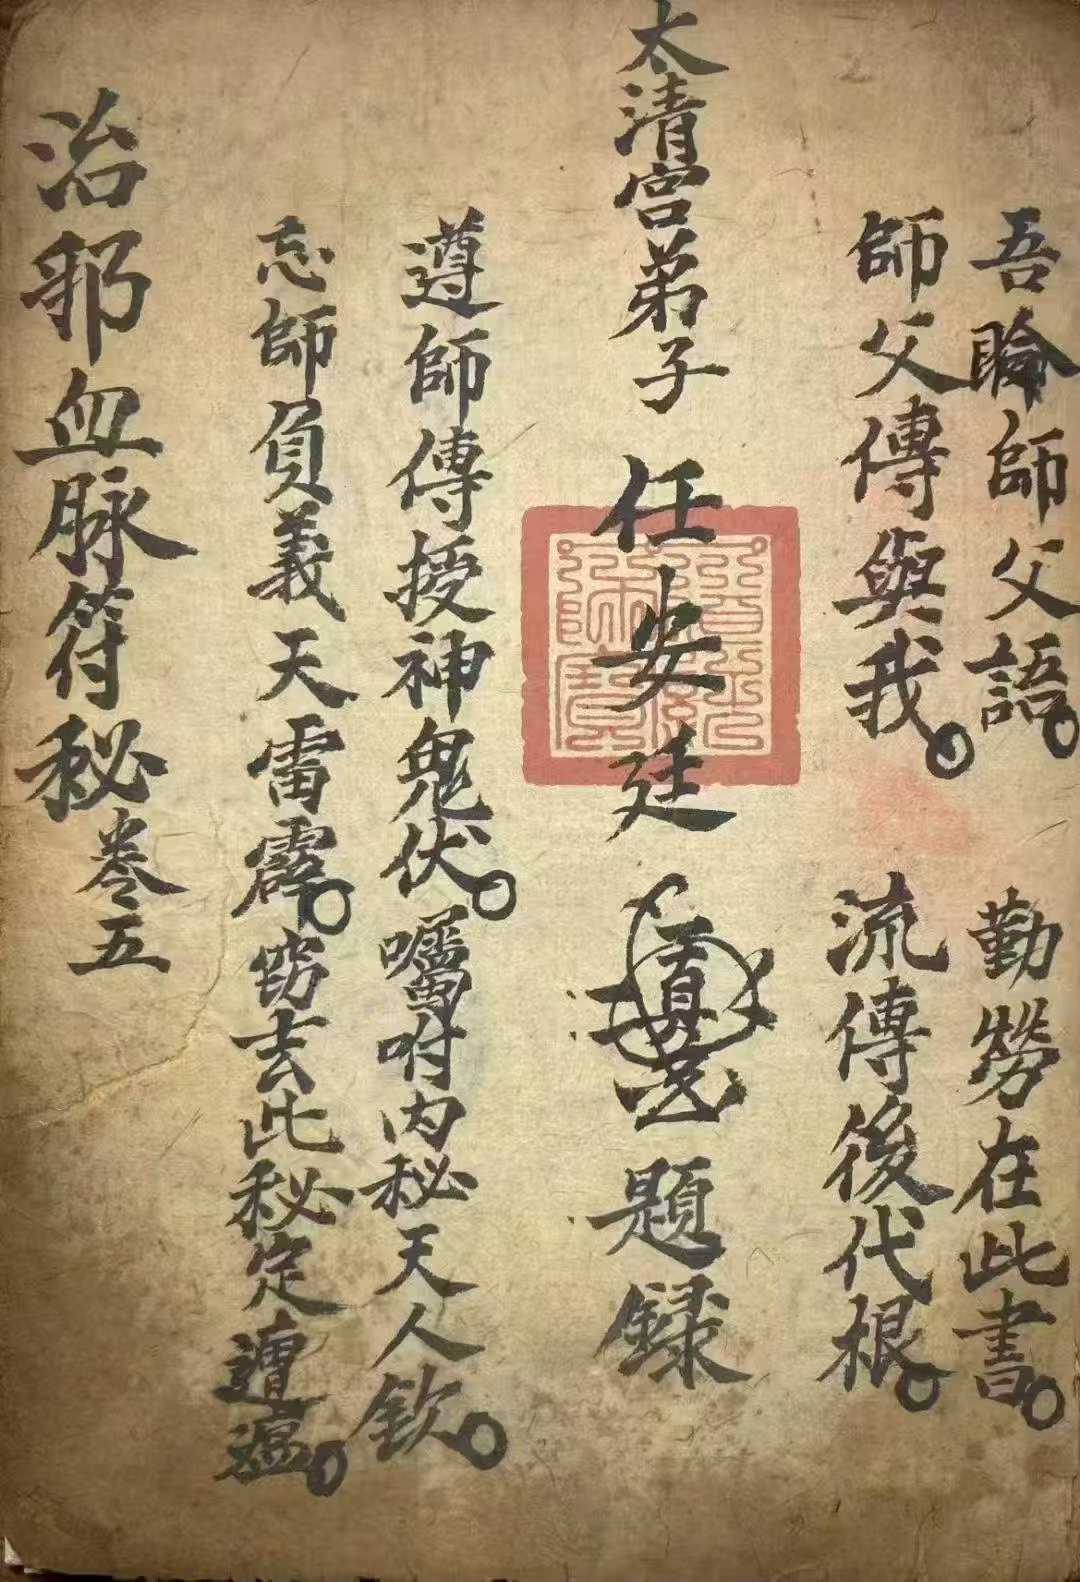 吾聆師父語。勤勞在此書。
師父傳與我。流傳後代根。
太清宮弟子任安廷 題録
遵師傳授神鬼伏。囑咐内秘天人欽。
忘師負義天雷霹。窃去此秘定遭瘟。
治邪血脉符秘卷五